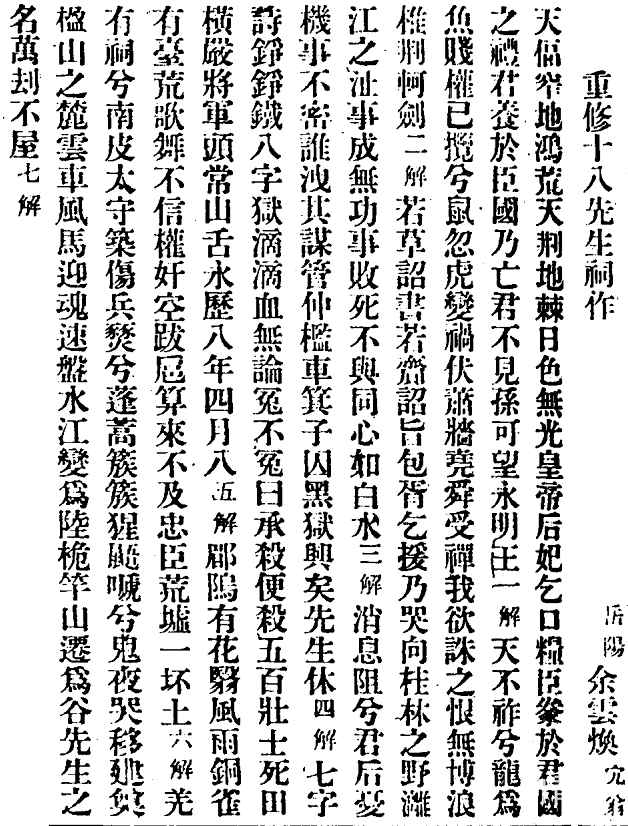 重修十八先生祠作
岳陽 余雲煥 宂翁
天偪窄地鴻荒天荆地棘日色無光皇帝后妃乞口糧臣豢於君國
之禮君養於臣國乃亡君不見孫可望永明王一解天不祚兮龍為
魚賤權已攬兮鼠忽虎變禍伏蕭牆堯舜受禪我欲誅之恨無博浪
椎荆軻劍二解若草詔書若齋詔旨包胥乞援乃哭向桂林之野灕
江之沚事成無功事敗死不與同心如白水三解消息阻兮君后憂
機事不密誰洩其謀管仲檻車箕子囚黑獄興矣先生休四解七字
詩錚錚鐵八字獄滴滴血無論冤不冤曰承殺便殺五百壯士死田
橫嚴將軍頭常山舌永歷八年四月八五解鄖隖有花翳風雨銅雀
有臺荒歌舞不信權奸空跋扈算來不及忠臣荒墟一坏土六解羌
有祠兮南皮太守築傷兵燹兮蓬蒿簇簇猩鼯嗁兮鬼夜哭移建奠
楹山之麓雲車風馬迎魂速盤水江變為陸桅竿山遷為谷先生之
名萬刦不屋七解